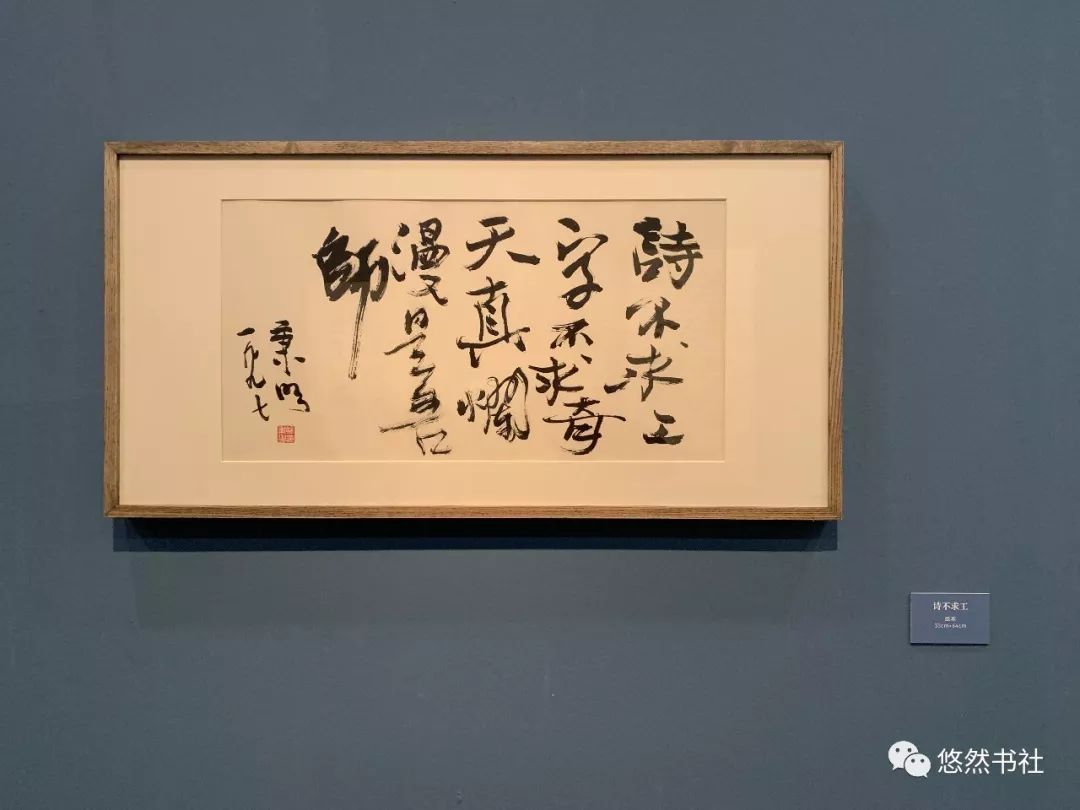 詩不求工
字不求奇
天真爛
漫是吾
師
秉明
一九九七
诗不求工
纸本
悠然书社